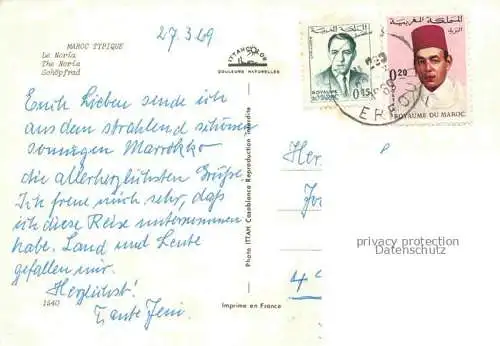 27.3.69
MAROC TYPIQUE
Le Noria
The Noria
Schöpfrad
ITTAHCOLOR
COULEURS NATURELLES
Euch Lieben sende ich
aus dem strahlend schönen
sonnigen Marokko
die allerherzlichsten Grüße.
Ich freue mich sehr, daß
ich diese Reise unternommen
habe. Land und Leute
gefallen mir.
Herzlichst!
Tante Jeni
1540
Photo ITTAH Casablanca Reproduction Interdite
Imprimé en France
المملكة المغربية
ROYAUME DU MAROC
0,15
المملكة المغربية
البريد
0,20
ROYAUME DU MAROC
Her
privacy protection
Datenschutz